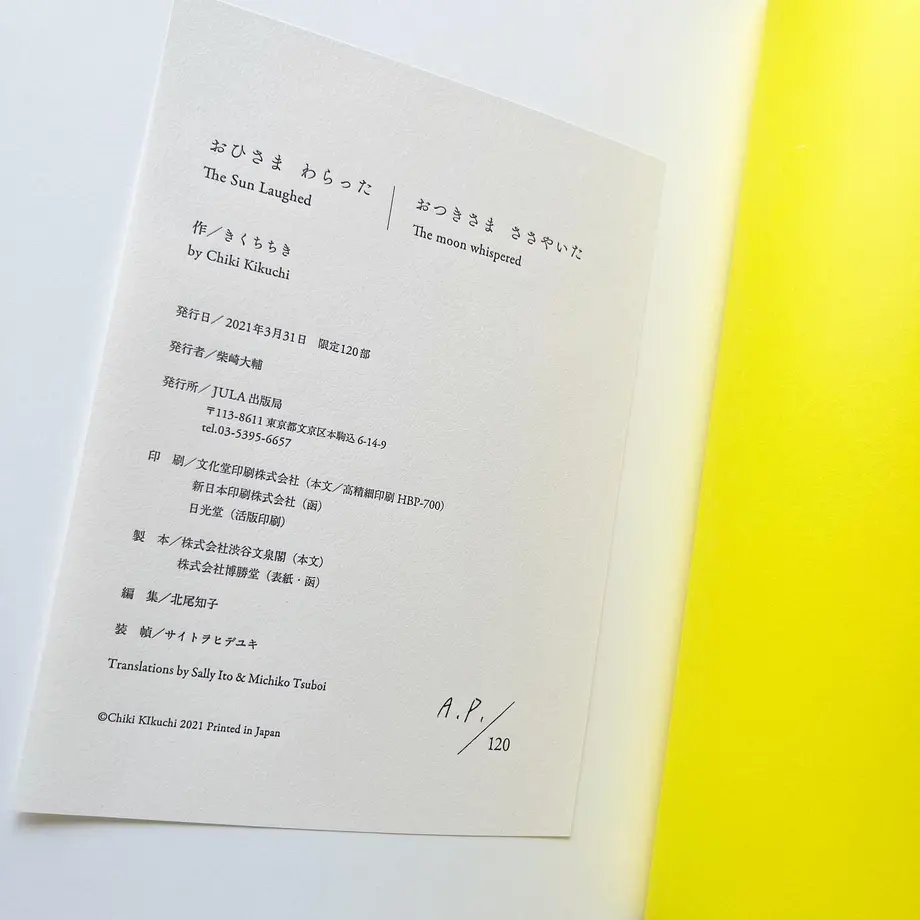 おひさま わらった
The Sun Laughed
おつきさま ささやいた
The moon whispered
作／きくちちき
by Chiki Kikuchi
発行日／2021年3月31日 限定120部
発行者／柴崎大輔
発行所／JULA出版局
〒113-8611 東京都文京区本駒込6-14-9
tel.03-5395-6657
印 刷／文化堂印刷株式会社（本文／高精細印刷 HBP-700）
新日本印刷株式会社（函）
日光堂（活版印刷）
製 本／株式会社渋谷文泉閣（本文）
株式会社博勝堂（表紙・函）
編 集／北尾知子
装 幀／サイトヲヒデユキ
Translations by Sally Ito & Michiko Tsuboi
©Chiki KIkuchi 2021 Printed in Japan
A.P.／120